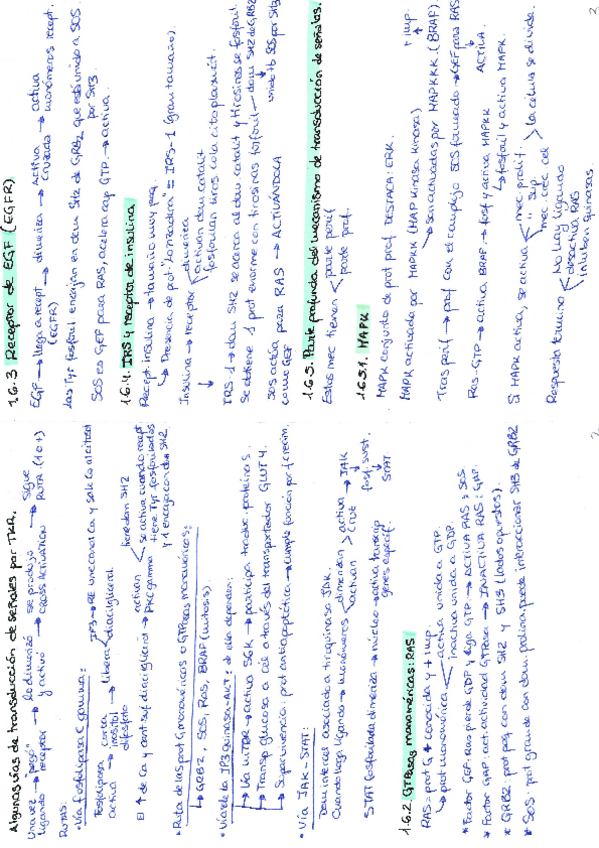 Algunas vías de transducción de señales por TKR.
Una vez "pegó" → lo dimerizó → se produjo → sigue
ligando receptor y activó CROSS ACTIVATION RUTA (10+)
RUTAS:
• Vía fosfolipasa C gamma:
Fosfolipasa → corta → libera IP3 → RE une canal Ca y sale Ca al citosol
activa inositol diacilglicerol
difosfato
El ↑ de Ca y cant suf diacilglicerol → activan PKC gamma
tiene dom SH2
se activa cuando recept.
tiene Tyr fosforiladas
y encaja con dom SH2
• Ruta de las prot G monoméricas o GTPasas monoméricas:
→ GRB2, SOS, Ras, BRAF (mitosis).
• Vía de la IP3 Quinasa-AKT: de ella dependen:
→ Vía mTOR → activa SGK → participa traduc. proteínas.
→ Transp glucosa a cél a través del transportador GLUT4.
→ Supervivencia: prot antiapoptótica → cumple función por f crecim.
• Vía JAK-STAT:
Dom intercel asociado a tirquinasa JAK.
Cuando llega ligando → monómeros dimerizan activa → JAK
actúan cruz fosf sust.
STAT
STAT fosforilada dimeriza → núcleo → activa transcrip
genes específ.
1.6.2. GTPasas monoméricas: RAS
RAS = prot G + conocida y + imp.
prot monomérica activa unida a GTP.
inactiva unida a GDP.
* Factor GEF: Ras pierde GDP y liga GTP → ACTIVA RAS: SOS
* Factor GAP: act. actividad GTPasa → INACTIVA RAS: GAP.
* GRB2: prot peq con dom SH2 y SH3 (lados opuestos).
* SOS: prot grande con dom. prolina puede interaccionar SH3 de GRB2
2
1.6.3 Receptor de EGF (EGFR)
EGF → llega a recept → dimeriza → Activa → activa
(EGFR) cruzada monómeros recept.
Las Tyr fosforil encajan en dom SH2 de GRB2 que está unido a SOS
por SH3
SOS es GEF para RAS, acelera cap GTP → activa.
1.6.4. IRS y receptor de insulina
Recept. insulina → tamaño muy peq.
→ Presencia de prot "lanzadera" = IRS-1 (gran tamaño).
Insulina → receptor dimeriza
activan dom catalít
fosforilan tiros cola citoplasmát.
IRS-1 → dom SH2 se acerca al dom catalít y tirosinas se fosforil.
Se obtiene 1 prot enorme con tirosinas fosforil — dom SH2 de GRB2
unido tb SOS por SH3
SOS actúa para RAS → ACTIVÁNDOLA
como GEF
1.6.5. Parte profunda del mecanismo de transducción de señales.
Estos mec tienen parte perif
parte prof.
1.6.5.1. MAPK
MAPK conjunto de prot prof DESTACA: ERK.
MAPK activada por MAPKK (MAP kinasa kinasa) + imp.
→ son activadas por MAPKKK. (BRAF)
Tras perif → prof con el complejo SOS formado → GEF para RAS
ACTIVA
Ras-GTP → activa BRAF → fosf y activa MAPKK
→ fosforil y activa MAPK.
Si MAPK activa, se activa mec prolif.
" sup.
mec crec cel
la célula se divide.
Respuesta termina No hay ligando
desactiva RAS
inhiben quinasas
2